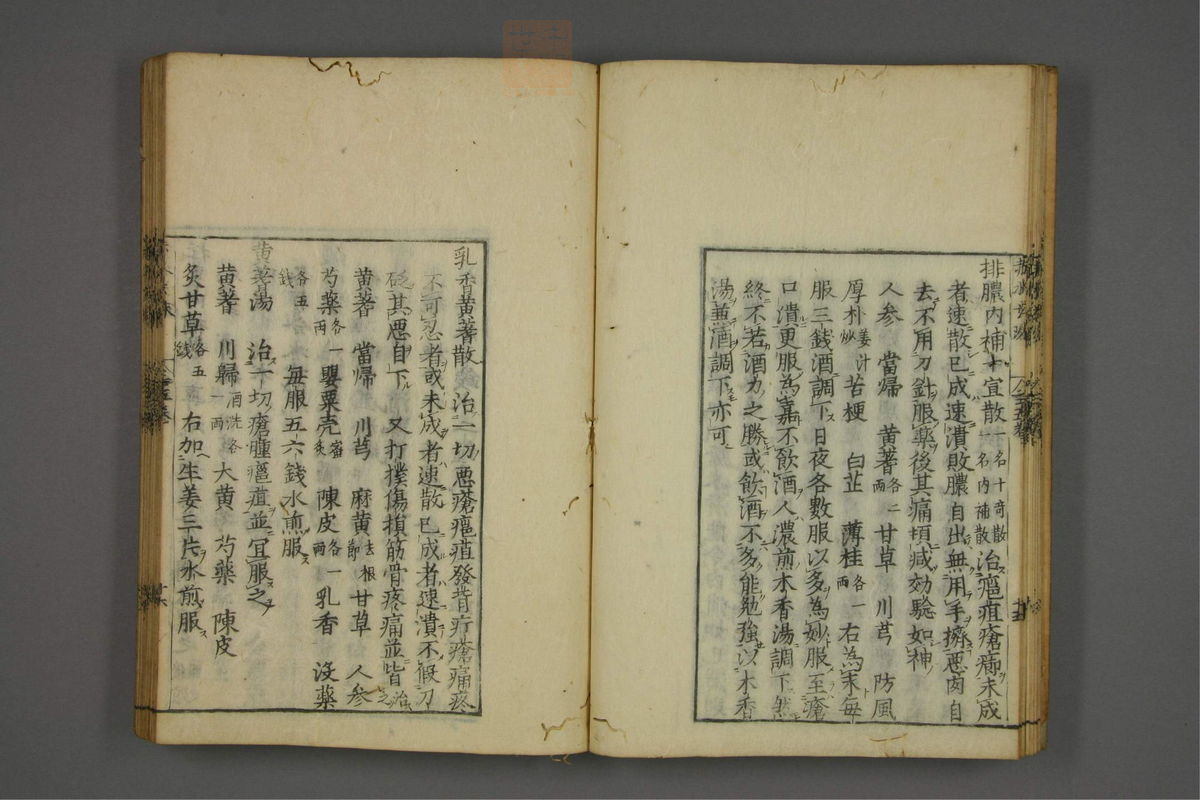 排膿内補十宣散一名十奇散一名内補散治癰疽瘡癤未成
者速散已成速潰敗膿自出無用手擠悪肉自
去不用刀針服薬後其痛頓减効驗如神
人参 當帰 黄蓍各二両 甘草 川芎 防風
厚朴姜汁炒 苦梗 白芷 薄桂各一両 右為末毎
服三銭酒調下日夜各數服以多為妙服至瘡
口潰更服為嘉不飲酒人濃煎木香湯調下然
終不若酒力之勝或飲酒不多能勉強以木香
湯並酒調下亦可
乳香黄蓍散 治一切悪瘡癰疽發背疔瘡痛疼
不可忍者或未成者速散已成者速潰不假刀
砭其悪自下 又打撲傷損筋骨疼痛並皆治之
黄蓍 當帰 川芎 麻黄去根節 甘草 人参
各五銭 芍薬各一両 罌粟壳蜜炙 陳皮各一両 乳香 没薬
毎服五六銭水煎服
黄蓍湯 治一切瘡腫癰疽並冝服之
黄蓍 川歸酒洗各一両 大黄 芍薬 陳皮
炙甘草各五銭 右加生姜三片水煎服